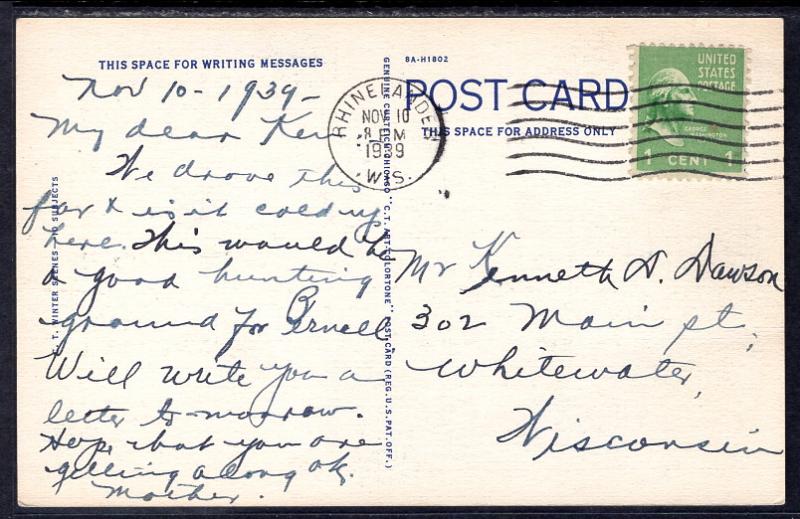 THIS SPACE FOR WRITING MESSAGES
Nov 10-1939-
My dear Ken
We drove this
far & is it cold up
here. This would be
a good hunting
ground for
Will write you a
letter to-morrow.
Hope that you are
getting along ok.
Mother.
C. T. WINTER SCENES - 10 SUBJECTS
GENUINE CURTEICH-CHICAGO "C.T. ART-COLORTONE" POST CARD (REG. U.S. PAT. OFF.)
8A-H1802
POST CARD
THIS SPACE FOR ADDRESS ONLY
RHINELANDER
NOV 10
8 PM
1939
WIS.
UNITED
STATES
POSTAGE
GEORGE
WASHINGTON
1 CENT 1
Mr Kenneth D. Dawson
302 Main st.
Whitewater,
Wisconsin